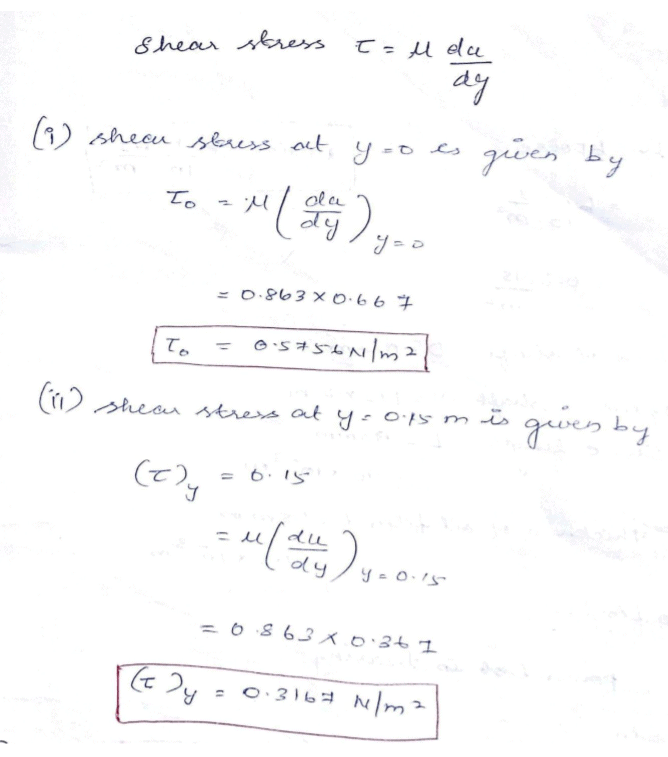 Shear stress τ = μ du/dy
(i) shear stress at y=0 is given by
τ₀ = μ (du/dy)y=0
= 0.863 × 0.667
τ₀ = 0.5756 N/m²
(ii) shear stress at y = 0.15 m is given by
(τ)y = 0.15
= μ (du/dy)y=0.15
= 0.863 × 0.367
(τ)y = 0.3167 N/m²